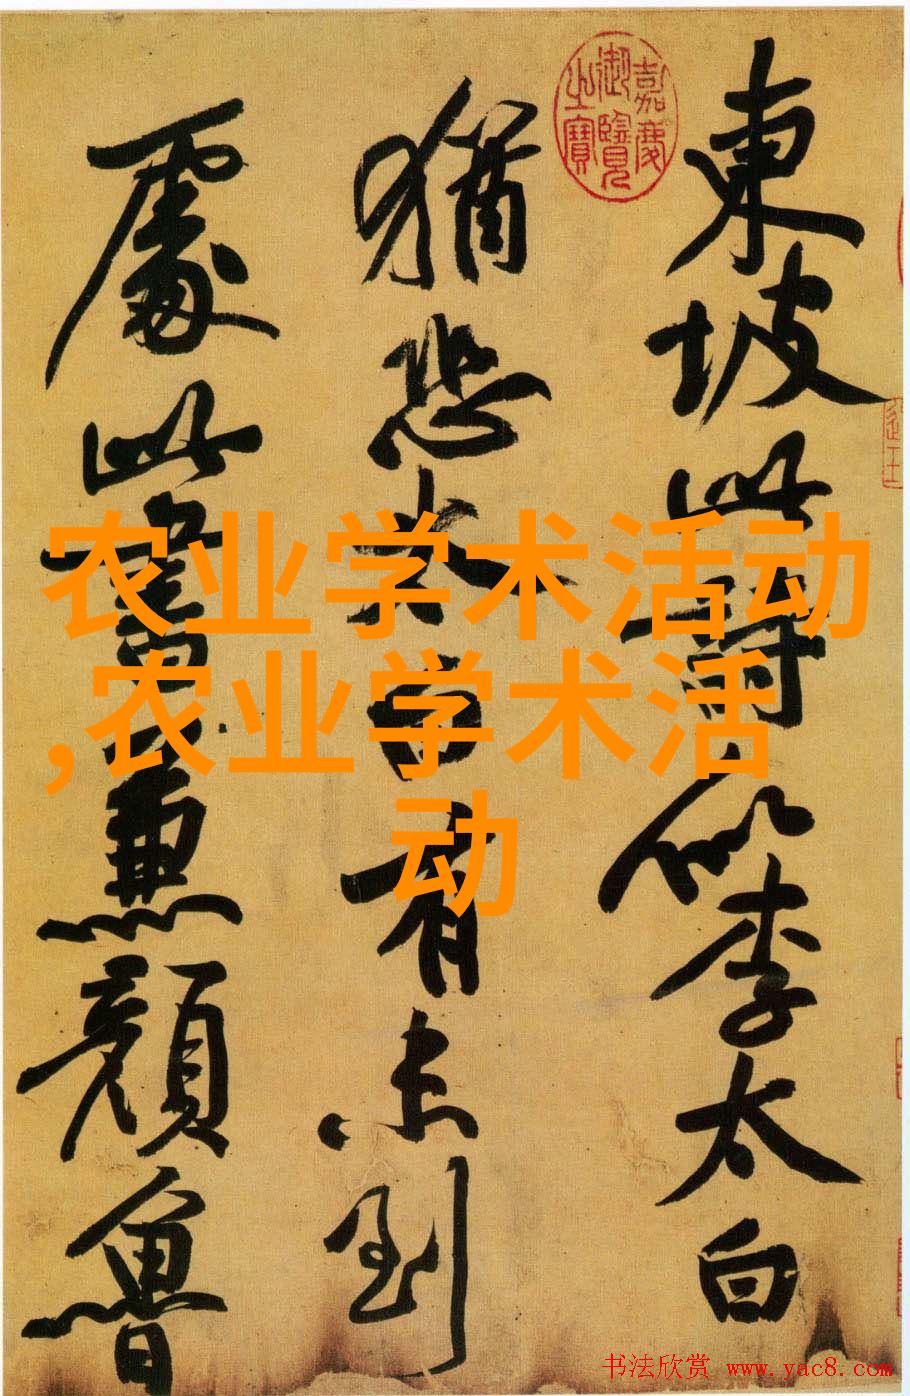 東坡此詩似李太白
猶恐太白有未到
處此書兼顏魯
嘉慶
御覽
之寶
农业学术活动
,农业学术活
动
书法欣赏 www.yac8.com